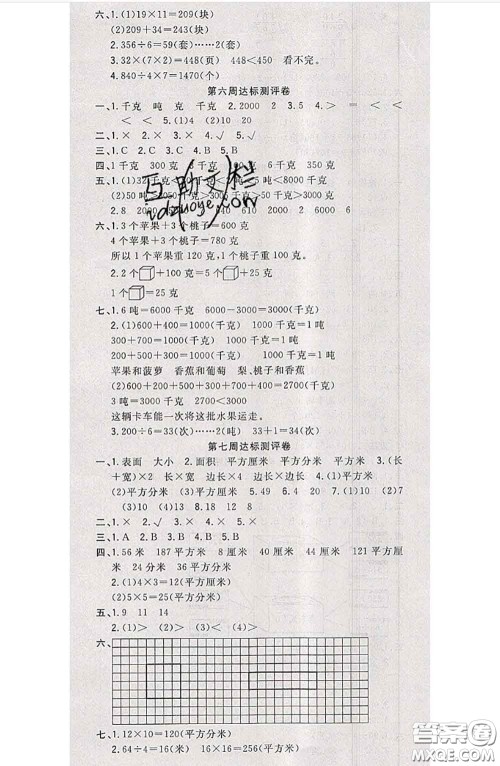 六、1.(1)19×11=209(块)
(2)209+34=243(块)
2.356÷6=59(套)……2(套)
3.32×(7×2)=448(页) 448<450 看不完。
4.840÷4×7=1470(个)
第六周达标测评卷
一、1.千克 吨 克 千克 2.2000 2 3.5 4.> = < <
< < 5.(1)4 (2)10 20
二、1.× 2.× 3.× 4.√
三、1.C 2.C 3.C 4.B 5.B
四、1千克 300克 克 6千克 350克
五、(1)32千克
(2)50吨 千克>50千克>3000克
2.8 640 610 2000 6
六、1.3个苹果+3个桃子=600克
4个苹果+3个桃子=780克
所以1个苹果重120克,1个桃子重80克。
2.2个 +100克=5个 +25克
1个 =25克
七、1.6吨=6000千克 6000-3000=3000(千克)
2.(1)600+400=1000(千克) 1000千克=1吨
700+300=1000(千克) 1000千克=1吨
200+500+300=1000(千克) 1000千克=1吨
苹果和菠萝 香蕉和葡萄 梨、桃子和香蕉
(2)600+200+500+300+700+400=2700(千克)
3吨=3000千克 2700<3000
这辆卡车能一次将这批水果运走。
3.200÷6=33(次)……2(吨) 33+1=34(次)
第七周达标测评卷
一、1.表面 大小 2.面积 平方厘米 平方分米 平方米 3.(长
+宽)×2 长×宽 边长×4 边长×边长 4.(1)平方米
(2)平方分米 (3)平方厘米 5.49 6.4 20 7.(1)10 (2)7
(3)10 (4)13 8.18 12 8
二、1.× 2.√ 3.× 4.× 5.×
三、1.A 2.B 3.A 4.B 5.B
四、1.56米 187平方米 8厘米 40厘米 44分米 121平方分
米 24分米 36平方分米
2.(1)4×3=12(平方厘米)
(2)5×5=25(平方厘米)
五、1.9 11 14
2.(1)> (2)> (3)< (4)>
六、
七、1.12×10=120(平方分米)
2.64÷4=16(米) 16×16=256(平方米)
答案圈
MXQE.COM